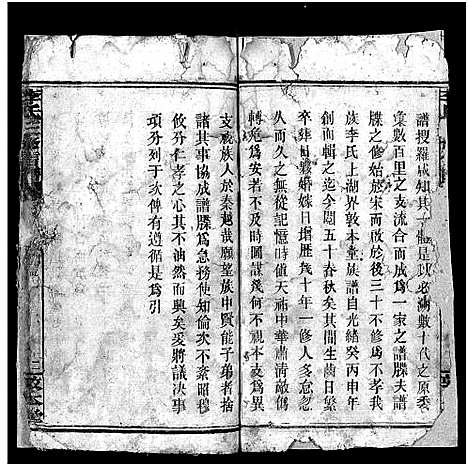 譜搜羅咸知其一體是以必溯數十代之原委
彙數百里之支流合而成為一家之譜牒夫譜
牒之修始於宋而啟於後三十不修為不孝我
族李氏上湖界敦本堂族譜自光緒癸丙申年
創而輯之迄今閱五十春秋矣其間生齒日繁
卒葬日夥婚嫁日增歷幾十年一修人多怠忽
久而久之無從記憶時值天祐中華肅清敵僞
轉危為安若不及時圖謀幾何不視本支為異
支視族人於秦越哉願望族中賢能子弟者捨
諸其事協成譜牒為急務使知倫次不紊昭穆
攸分仁孝之心其不油然而興矣爰將議決事
項分列于次俾有遵循是為引
李氏三修
三 敦本堂